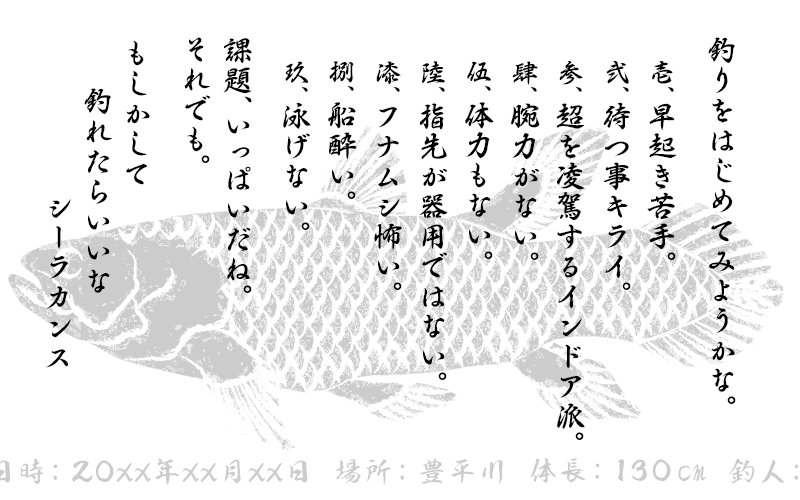 釣りをはじめてみようかな。
壱、早起き苦手。
弐、待つ事キライ。
参、超を凌駕するインドア派。
肆、腕力がない。
伍、体力もない。
陸、指先が器用ではない。
漆、フナムシ怖い。
捌、船酔い。
玖、泳げない。
課題、いっぱいだね。
それでも。
もしかして
釣れたらいいな
シーラカンス
日時：20xx年xx月xx日 場所：豊平川 体長：130cm 釣人：